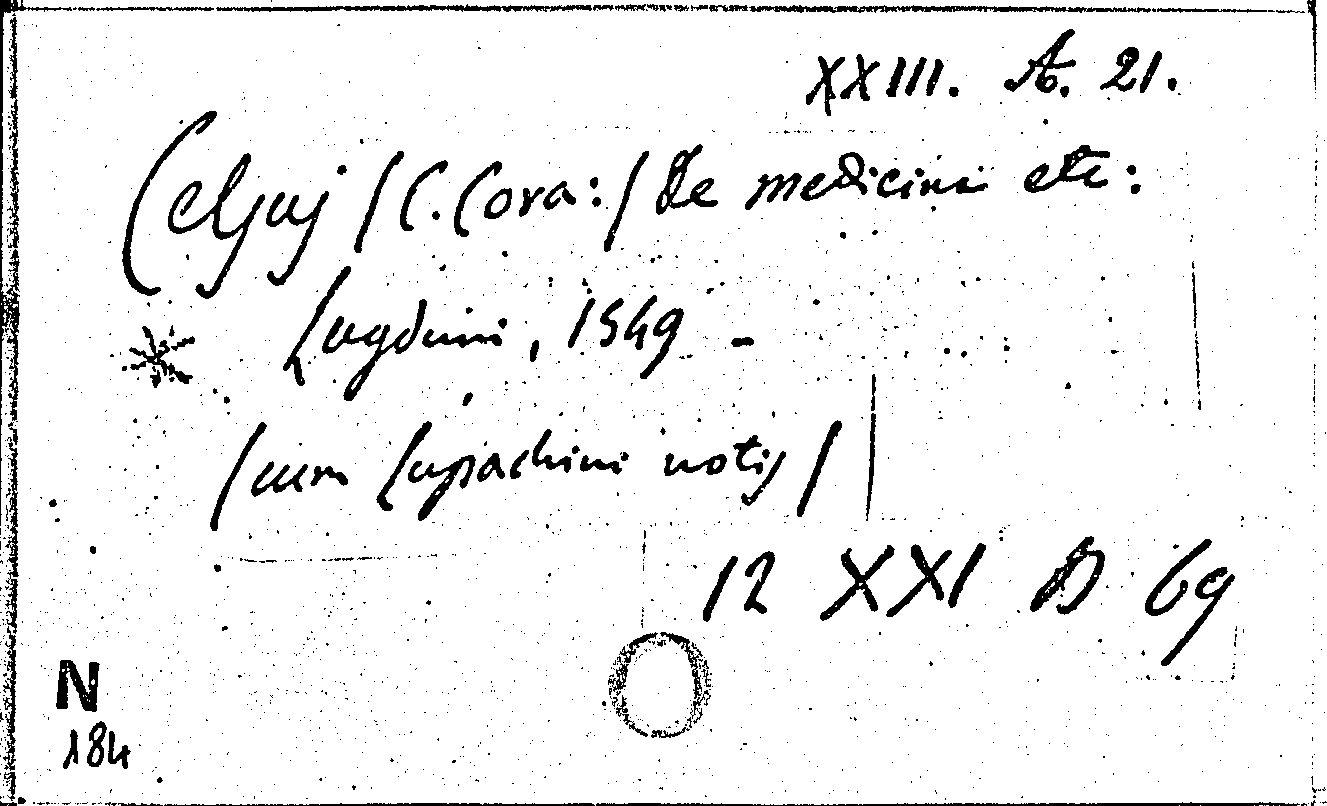 XXIII. A. 21.
Celsus /C. Cora:/ De medicina etc:
Lugduni, 1549 -
/cum Lupachini notis/
12 XXI D 69
N
184